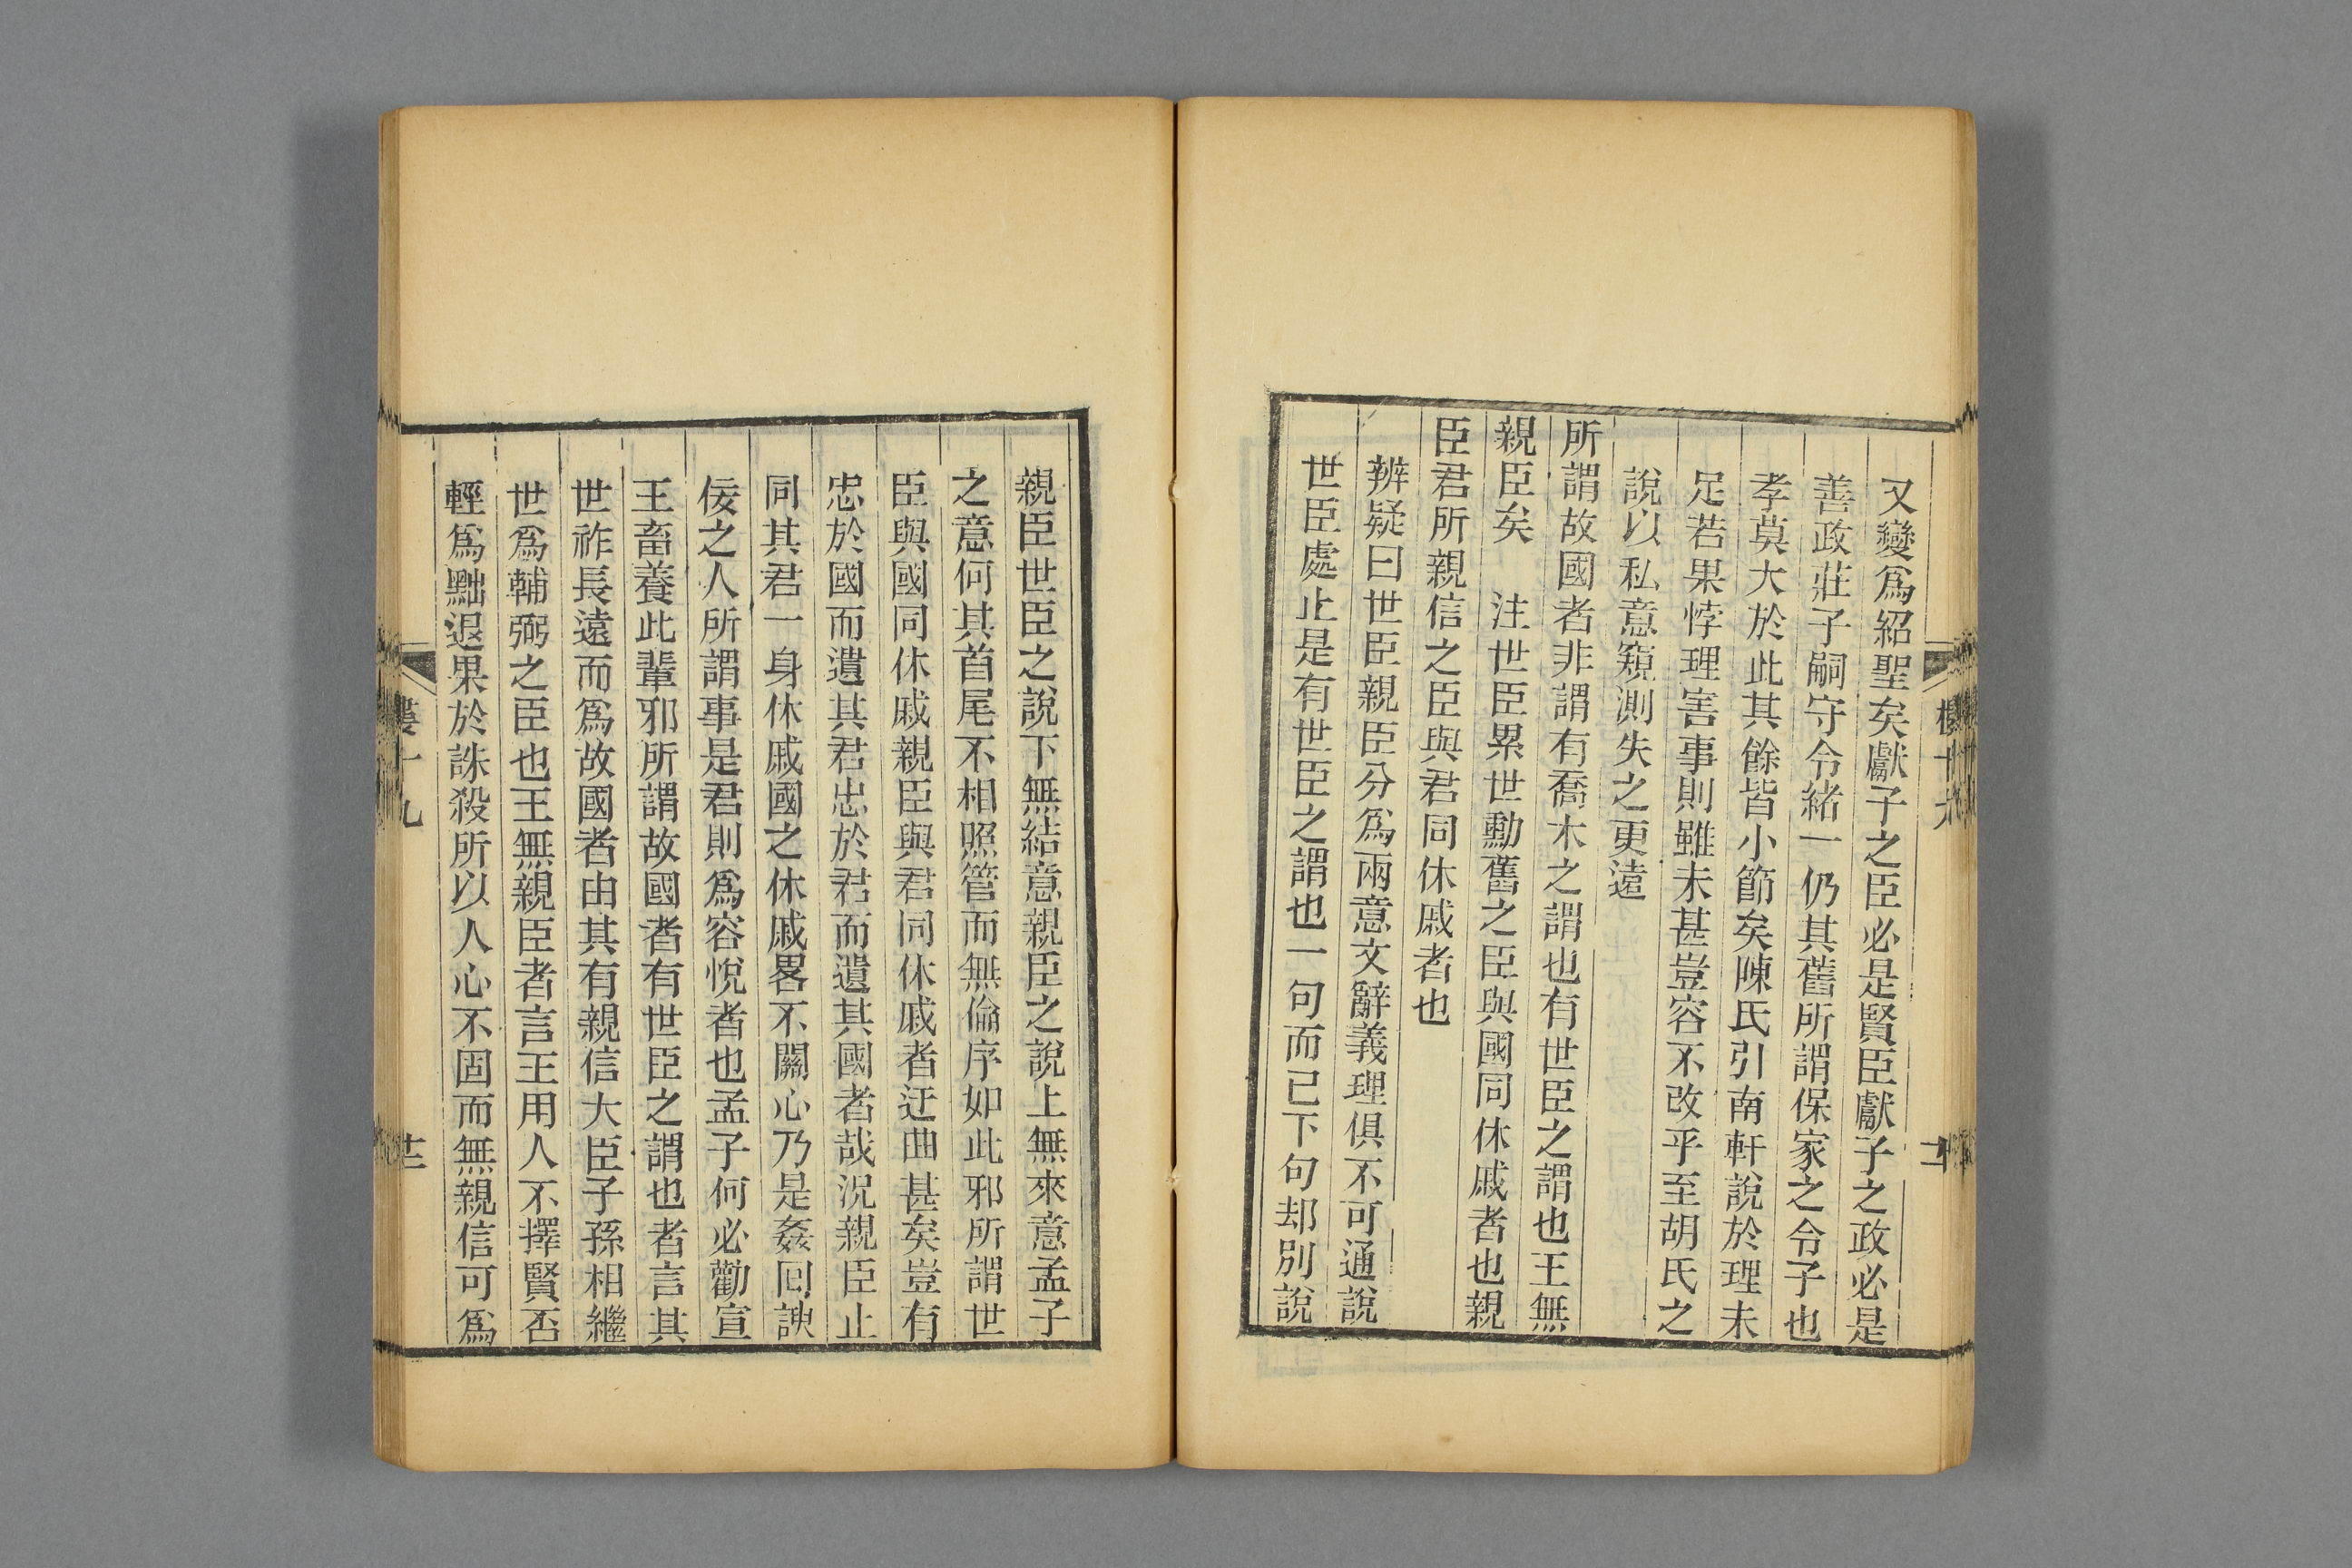 又變爲紹聖矣獻子之臣必是賢臣獻子之政必是
善政莊子嗣守令緒一仍其舊所謂保家之令子也
孝莫大於此其餘皆小節矣陳氏引南軒說於理未
足若果悖理害事則雖未甚豈容不改乎至胡氏之
說以私意窺測失之更遠
所謂故國者非謂有喬木之謂也有世臣之謂也王無
親臣矣　注世臣累世勳舊之臣與國同休戚者也親
臣君所親信之臣與君同休戚者也
辨疑曰世臣親臣分爲兩意文辭義理俱不可通說
世臣處止是有世臣之謂也一句而已下句却別說
親臣世臣之說下無結意親臣之說上無來意孟子
之意何其首尾不相照管而無倫序如此邪所謂世
臣與國同休戚親臣與君同休戚者迂曲甚矣豈有
忠於國而遺其君忠於君而遺其國者哉況親臣止
同其君一身休戚國之休戚畧不關心乃是姦回諛
佞之人所謂事是君則爲容悅者也孟子何必勸宣
王畜養此輩邪所謂故國者有世臣之謂也者言其
世祚長遠而爲故國者由其有親信大臣子孫相繼
世爲輔弼之臣也王無親臣者言王用人不擇賢否
輕爲黜退果於誅殺所以人心不固而無親信可爲